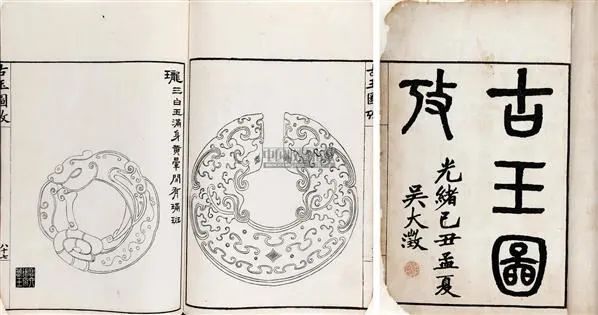 古玉圖
攷
光緒己丑孟夏
吳大澂
古玉圖攷
瓏
三白玉滿身黃暈間有璊斑
古玉圖攷
八十七